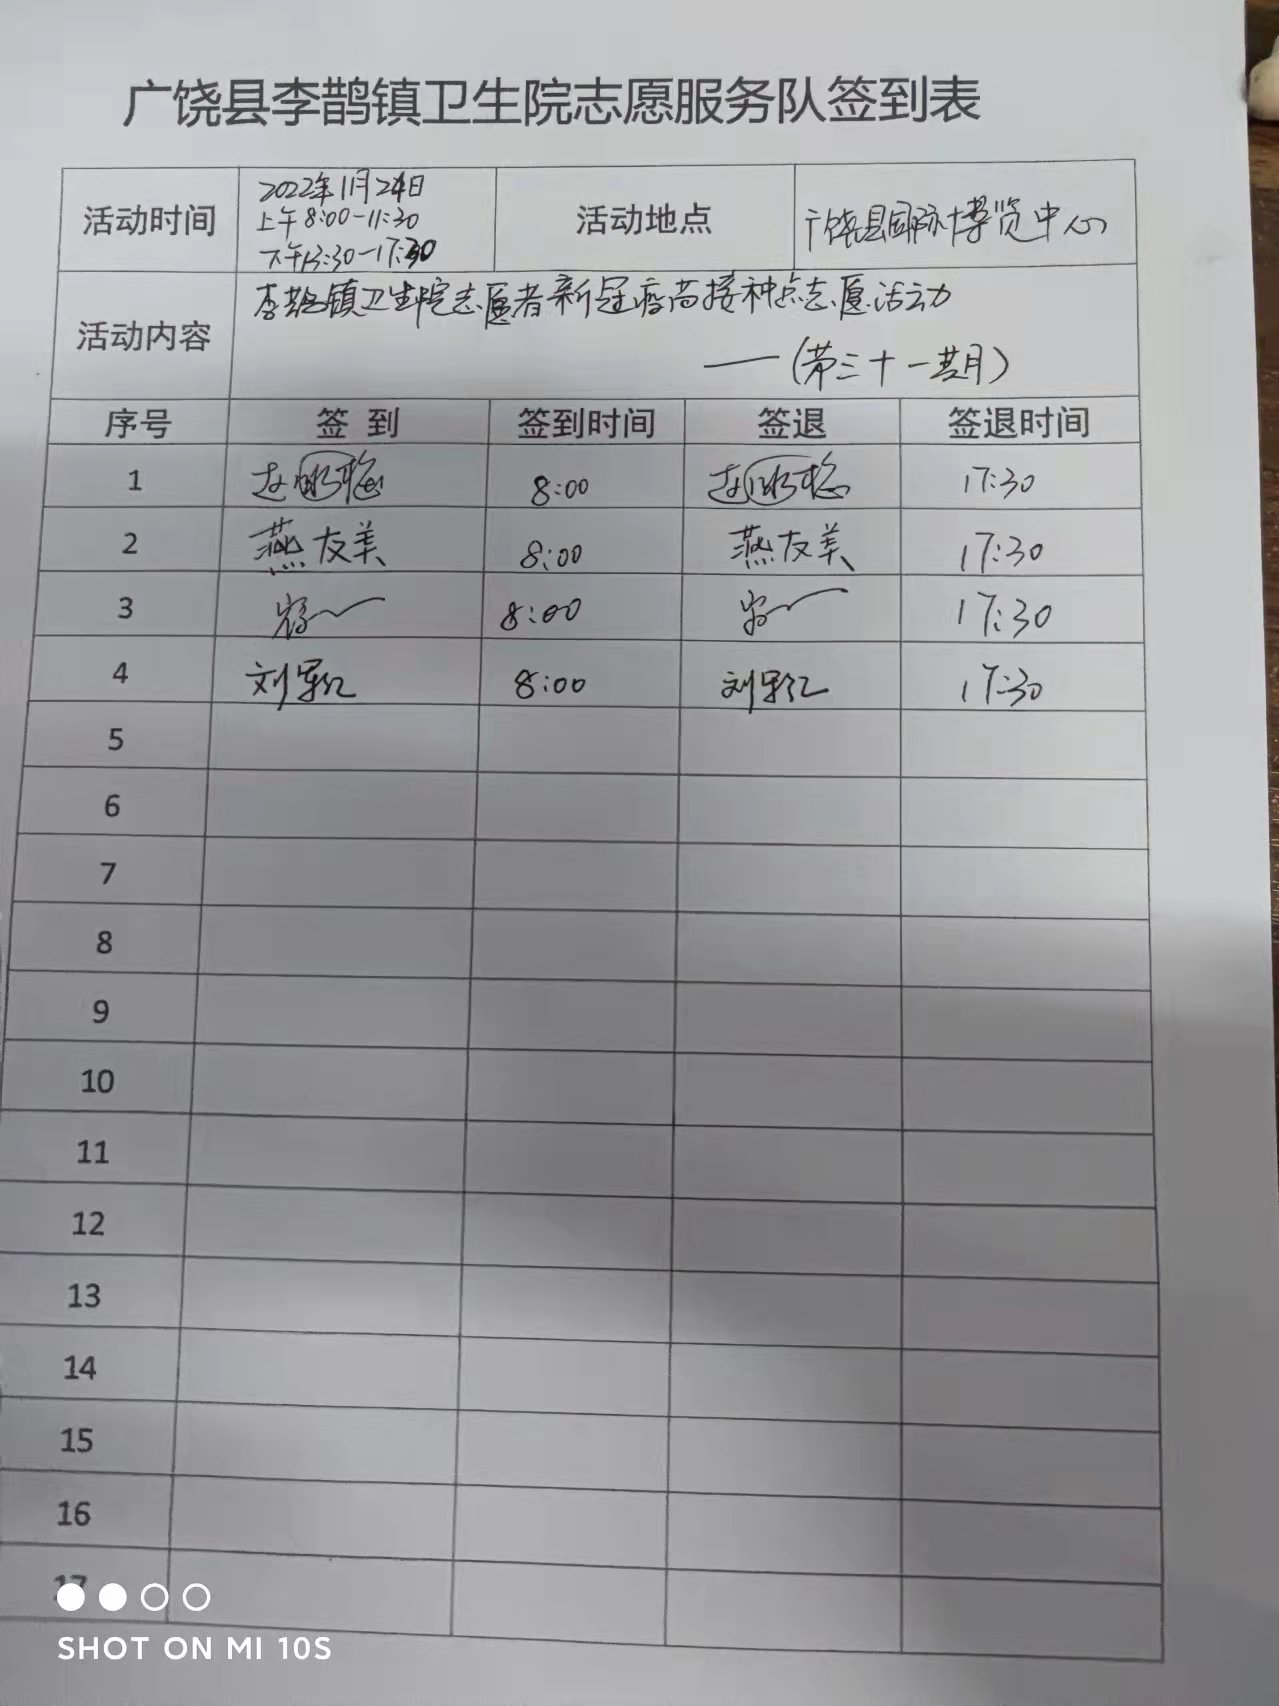 广饶县李鹊镇卫生院志愿服务队签到表
活动时间
2022年11月24日
上午8:00-11:30
下午13:30-17:30
活动地点
广饶县国际博览中心
活动内容
李鹊镇卫生院志愿者新冠疫苗接种点志愿活动
——(第三十一期)
序号 签到 签到时间 签退 签退时间
1 8:00 17:30
2 燕友美 8:00 燕友美 17:30
3 8:00 17:30
4 刘 8:00 刘 17:30
5
6
7
8
9
10
11
12
13
14
15
16
17
SHOT ON MI 10S